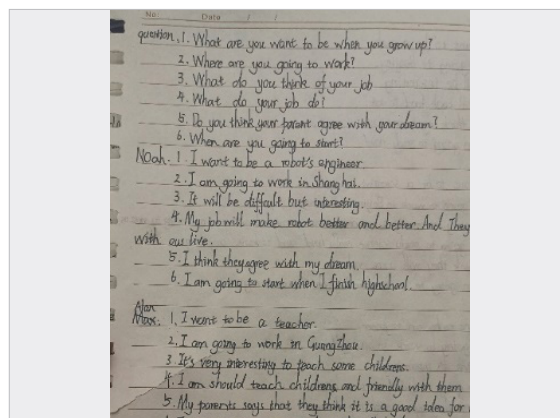 No: Date / /
question. 1. What are you want to be when you grow up?
2. Where are you going to work?
3. What do you think of your job
4. What do your job do?
5. Do you think your parent agree with your dream?
6. When are you going to start?
Noah. 1. I want to be a robot's engineer.
2. I am going to work in Shanghai.
3. It will be difficult but interesting.
4. My job will make robot better and better And They
with our live.
5. I think they agree with my dream
6. I am going to start when I finish highschool.
Alan
Max. 1, I want to be a teacher.
2, I am going to work in GuangZhou.
3. It's very interesting to teach some childrens.
4. I am should teach childrens and friendly with them
5. My parents says that they think it is a good idea for